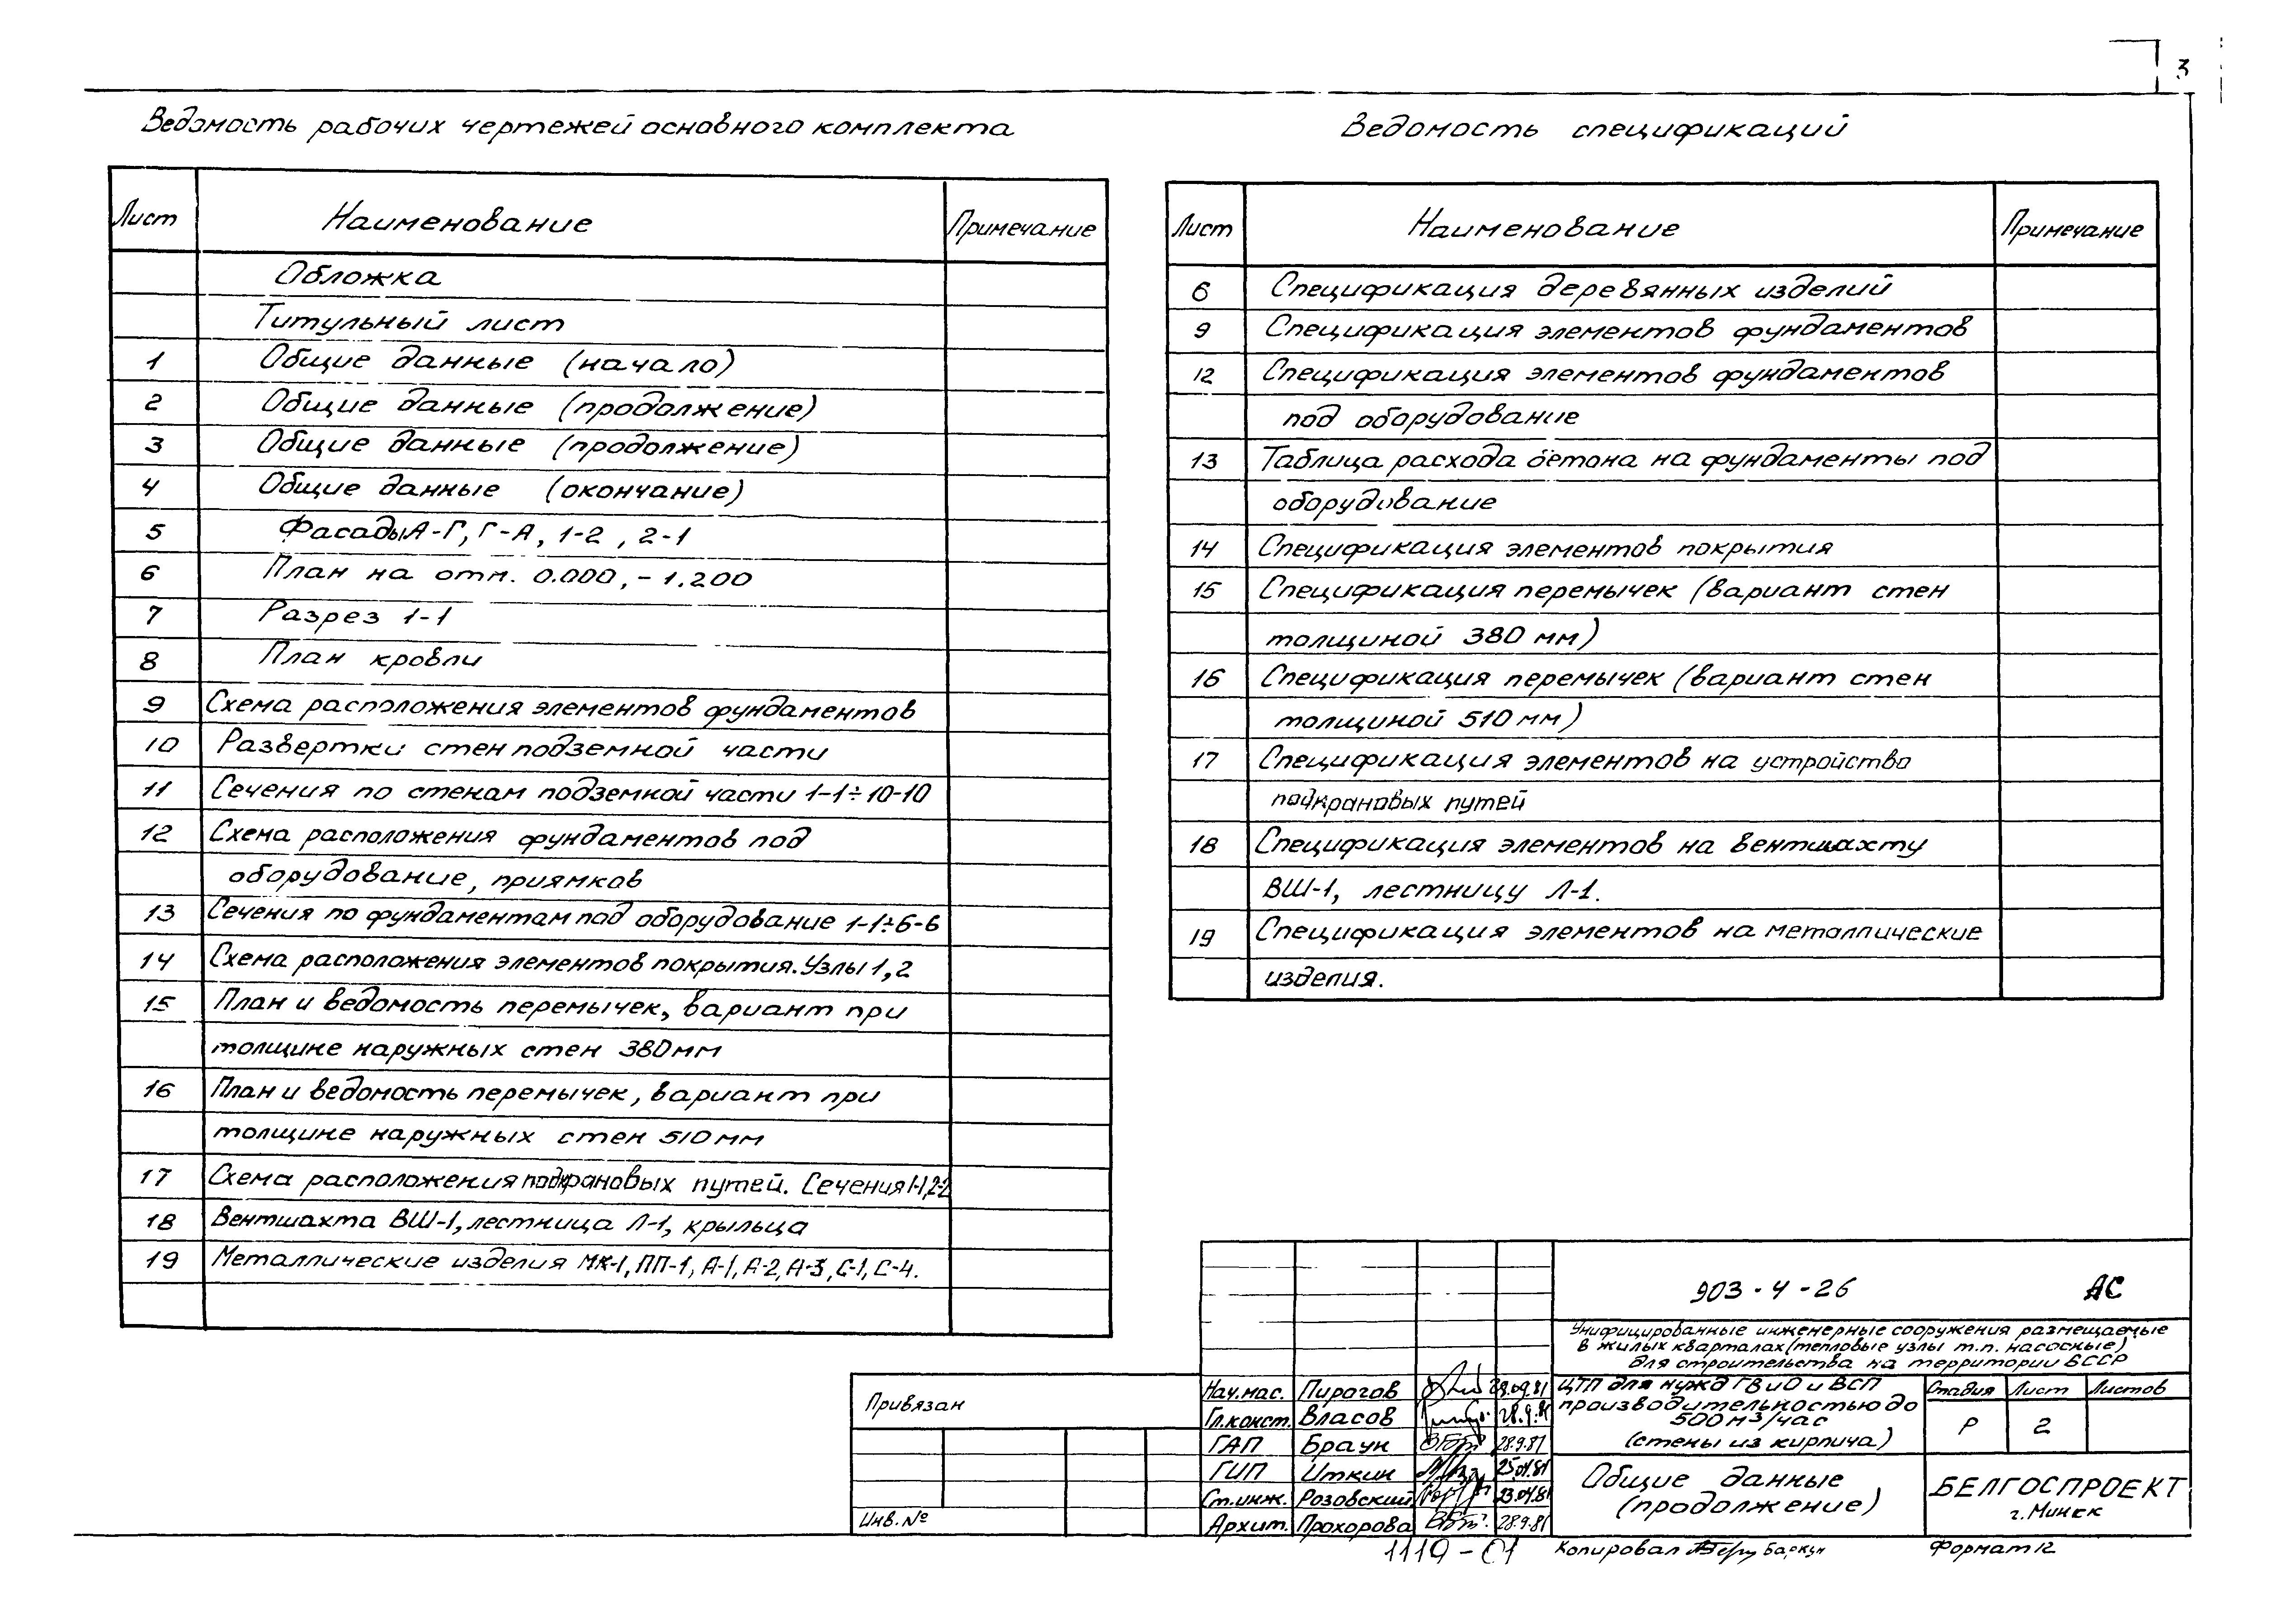 3
Ведомость рабочих чертежей основного комплекта
Лист Наименование Примечание
Обложка
Титульный лист
1 Общие данные (начало)
2 Общие данные (продолжение)
3 Общие данные (продолжение)
4 Общие данные (окончание)
5 Фасады А-Г, Г-А, 1-2, 2-1
6 План на отм. 0.000, -1.200
7 Разрез 1-1
8 План кровли
9 Схема расположения элементов фундаментов
10 Развертки стен подземной части
11 Сечения по стенам подземной части 1-1÷10-10
12 Схема расположения фундаментов под
оборудование, приямков
13 Сечения по фундаментам под оборудование 1-1÷6-6
14 Схема расположения элементов покрытия. Узлы 1, 2
15 План и ведомость перемычек, вариант при
толщине наружных стен 380 мм
16 План и ведомость перемычек, вариант при
толщине наружных стен 510 мм
17 Схема расположения подкрановых путей. Сечения 1-1, 2-2
18 Вентшахта ВШ-1, лестница Л-1, крыльца
19 Металлические изделия МК-1, ПП-1, А-1, А-2, А-3, С-1, С-4.
Ведомость спецификаций
Лист Наименование Примечание
6 Спецификация деревянных изделий
9 Спецификация элементов фундаментов
12 Спецификация элементов фундаментов
под оборудование
13 Таблица расхода бетона на фундаменты под
оборудование
14 Спецификация элементов покрытия
15 Спецификация перемычек (вариант стен
толщиной 380 мм)
16 Спецификация перемычек (вариант стен
толщиной 510 мм)
17 Спецификация элементов на устройство
подкрановых путей
18 Спецификация элементов на вентшахту
ВШ-1, лестницу Л-1.
19 Спецификация элементов на металлические
изделия.
Привязан
Инв. №
903-4-26 АС
Унифицированные инженерные сооружения размещаемые
в жилых кварталах (тепловые узлы т.п. насосные)
для строительства на территории БССР
Нач. мас. Пирогов 28.09.81
Гл. конст. Власов 28.9.81
ГАП Браун 28.9.81
ГИП Иткин 25.04.81
Ст. инж. Розовский 23.04.81
Архит. Прохорова 28.9.81
ЦТП для нужд ГВ и О и ВСП
производительностью до
500 м³/час
(стены из кирпича)
Стадия Лист Листов
Р 2
Общие данные
(продолжение)
БЕЛГОСПРОЕКТ
г. Минск
1119-01
Копировал Баркун
Формат 12